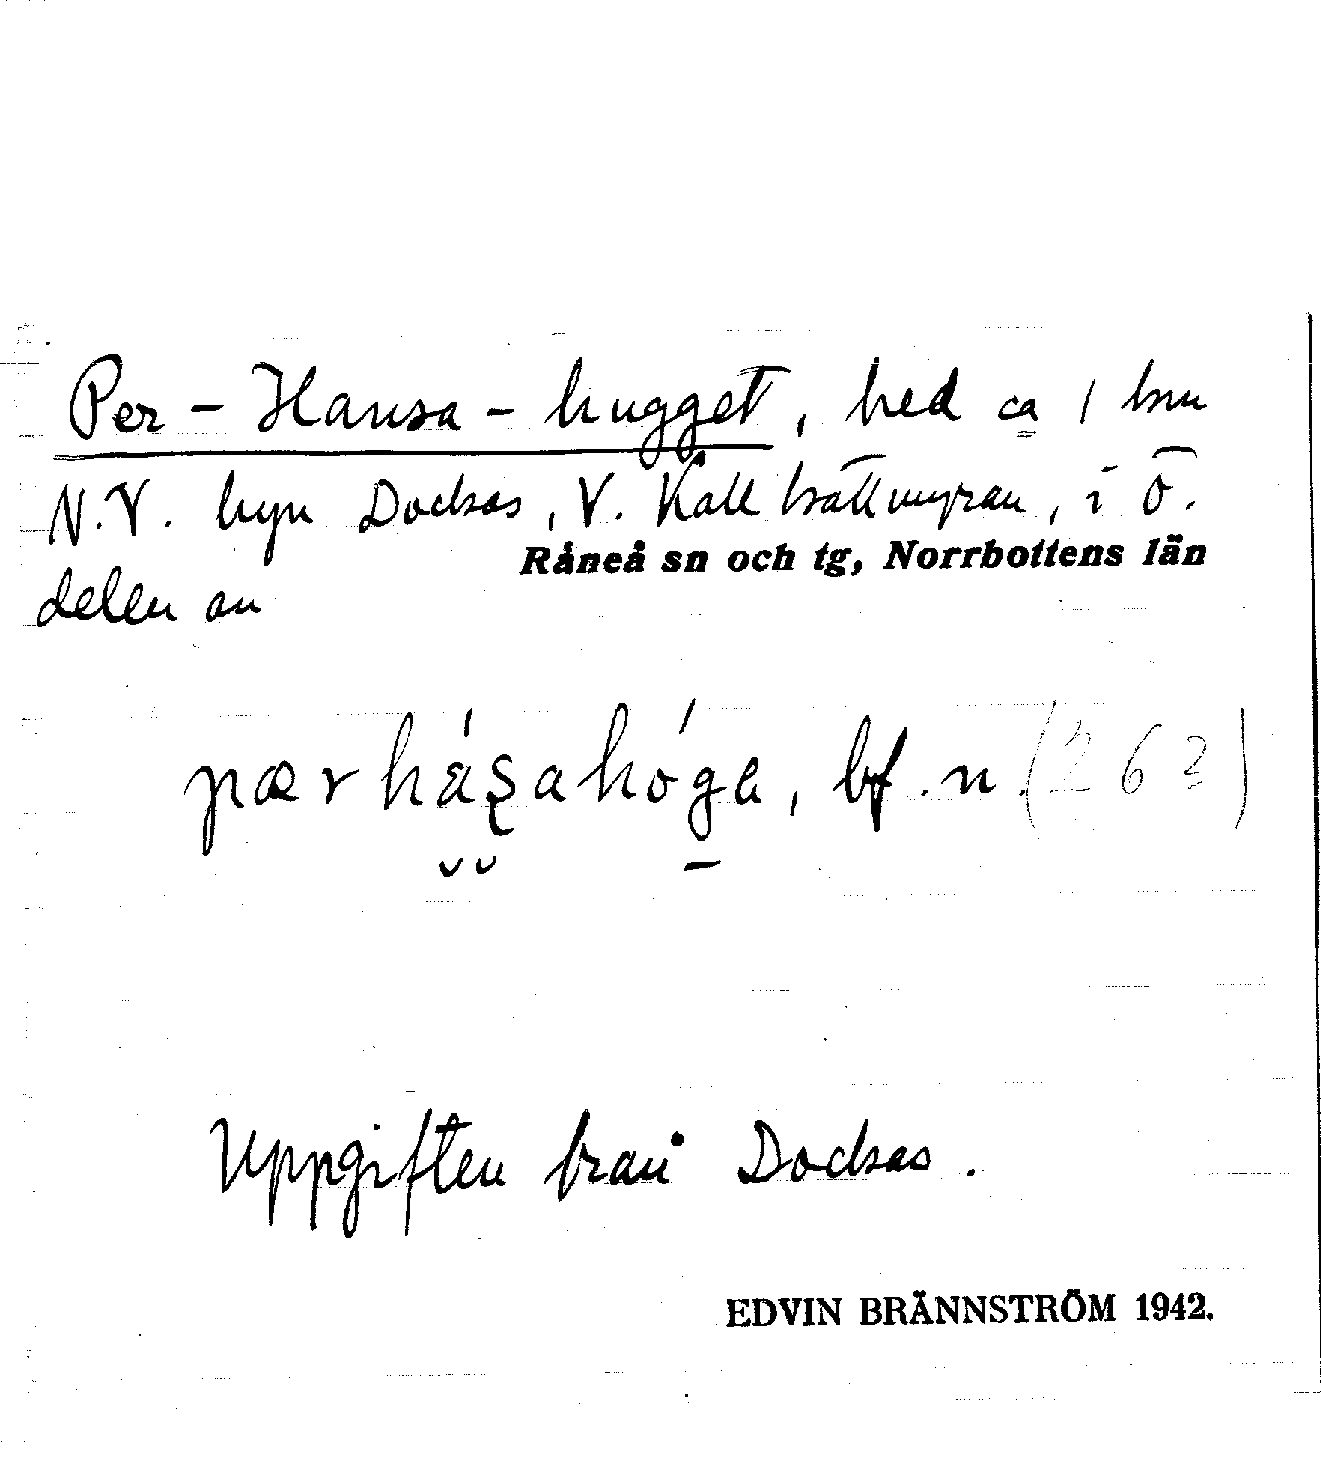 Per-Hansa-hugget, hed ca 1 km
N.V. byn Dockas, V. Kallkällmyran, i ö.
Råneå sn och tg, Norrbottens län
delen av
pærhásahóga, bf. n. (263)
Uppgiften från Dockas.
EDVIN BRÄNNSTRÖM 1942.